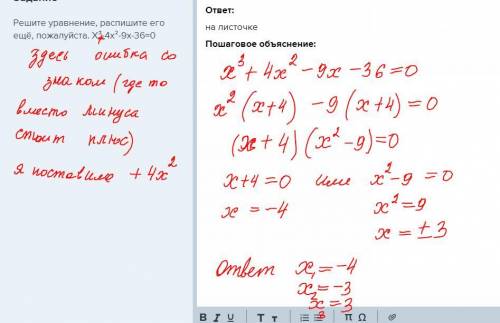 Решите уравнение, распишите его
ещё, пожалуйста. X³-4x²-9x-36=0
+
Здесь ошибка со
знаком (где то
вместо минуса
стоит плюс)
я поставила +4x²
Ответ:
на листочке
Пошаговое объяснение:
x³+4x²-9x-36=0
x²(x+4) -9(x+4)=0
(x+4)(x²-9)=0
x+4=0 или x²-9=0
x=-4 x²=9
x=±3
Ответ x₁=-4
x₂=-3
x₃=3
B I U Tт π Ω